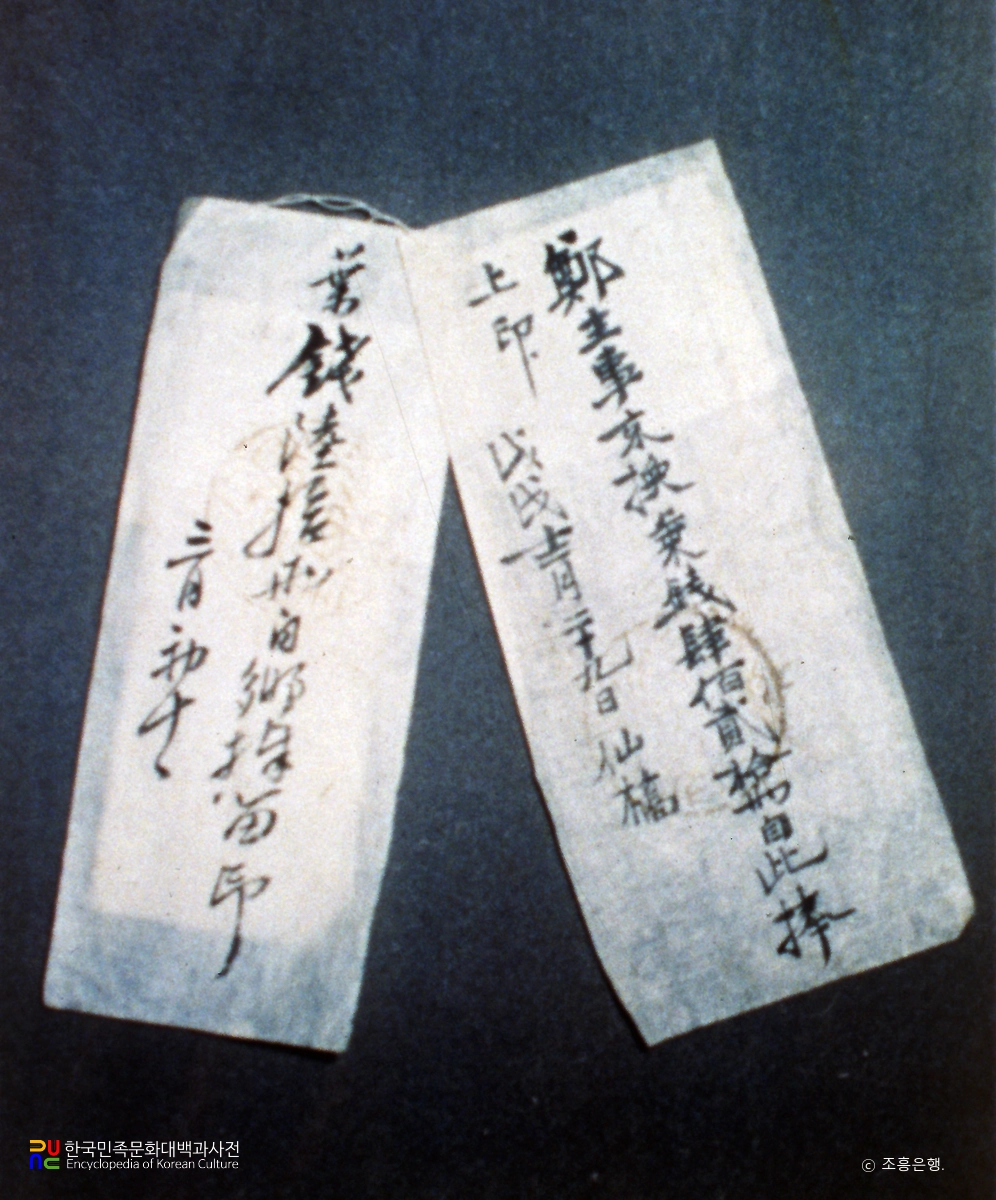 鄭主事京換葉錢肆佰貳拾兩自此捧
上印 戊戌十二月二十九日 仙橋
葉錢陸拾兩自鄉捧留印
三月初十日
한국민족문화대백과사전
Encyclopedia of Korean Culture
ⓒ 조흥은행.